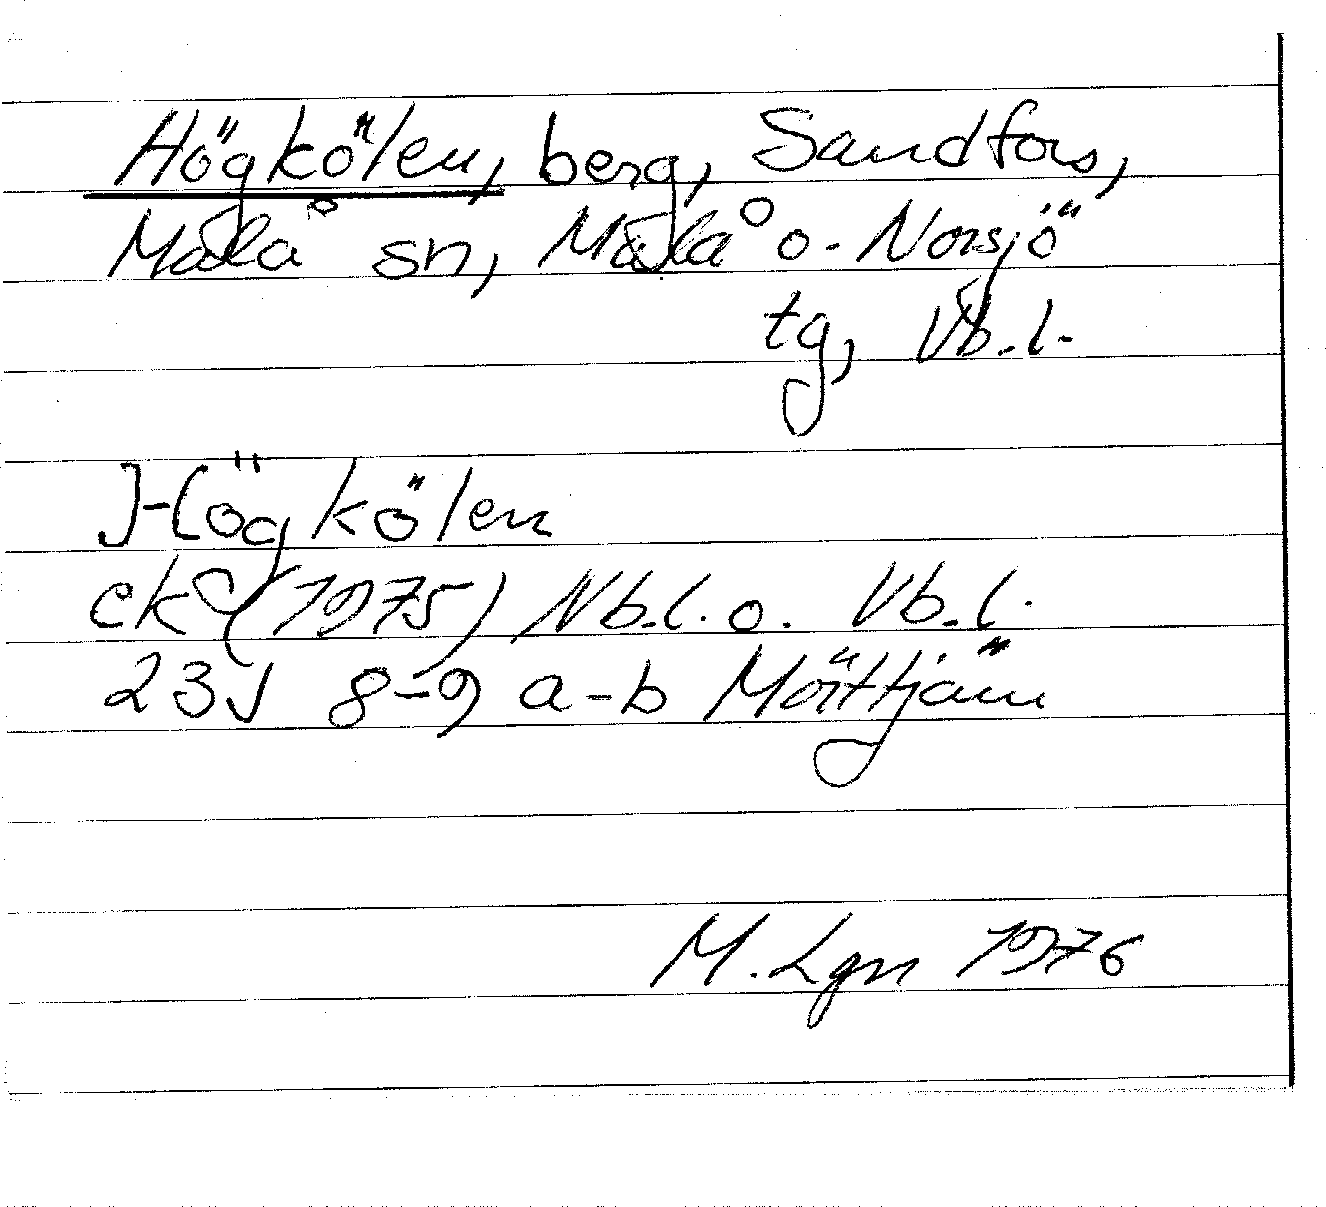 Högkölen, berg, Sandfors,
Malå sn, Malå o. Norsjö
tg, Vb.l.
Högkölen
ek (1975) Nb.l. o. Vb.l.
23J 8-9 a-b Mörttjärn
M. Lgn 1976